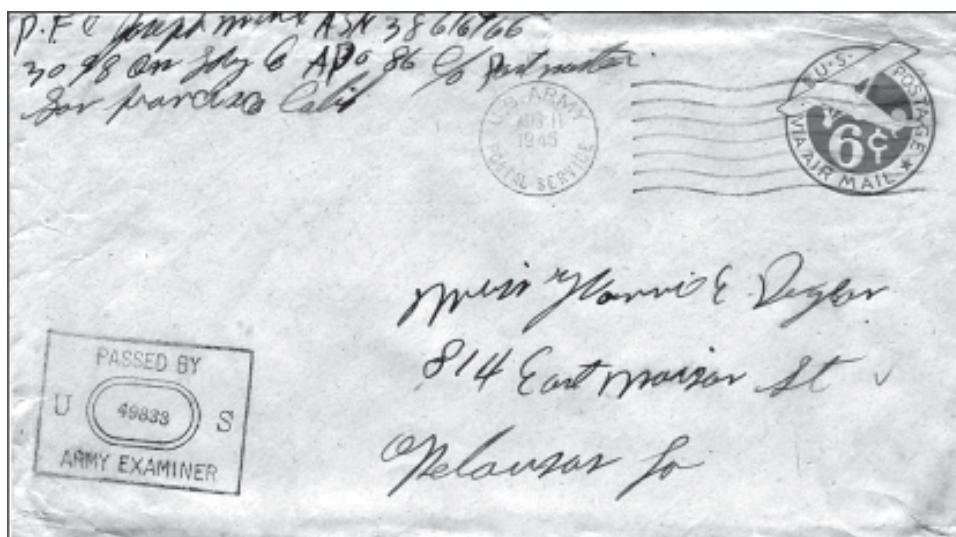 P.F.C Joseph ASN 38616766
3098 APO 86 c/o Postmaster
San Francisco Calif
U.S. ARMY
AUG 11
1945
POSTAL SERVICE
U.S. POSTAGE
6¢
VIA AIR MAIL
Miss E.
814 East St
Opelousas La
PASSED BY
U 49833 S
ARMY EXAMINER